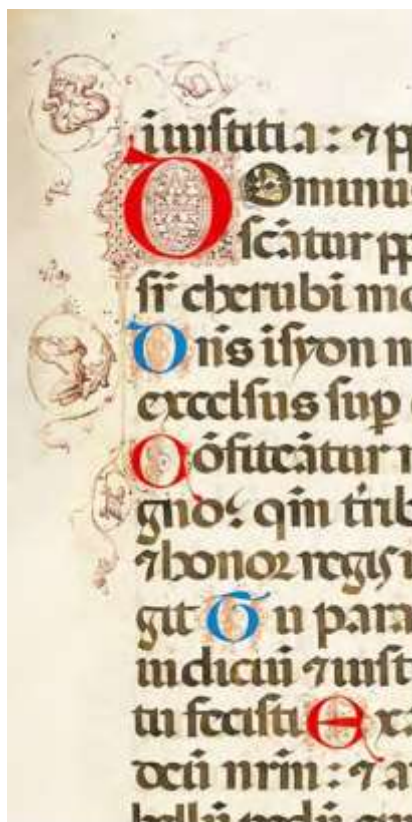 ī iustitia : ⁊ p
Dominu
scātur pp
sr̄ cherubī mo
Dn̄s isyon m
excelsus sup
Cōfiteātur n
gno : qm̄ trib
⁊ honor regis i
git Tu para
iudiciū ⁊ iust
tu fecisti Exa
deū nrm̄ : ⁊ a
bellū pedū